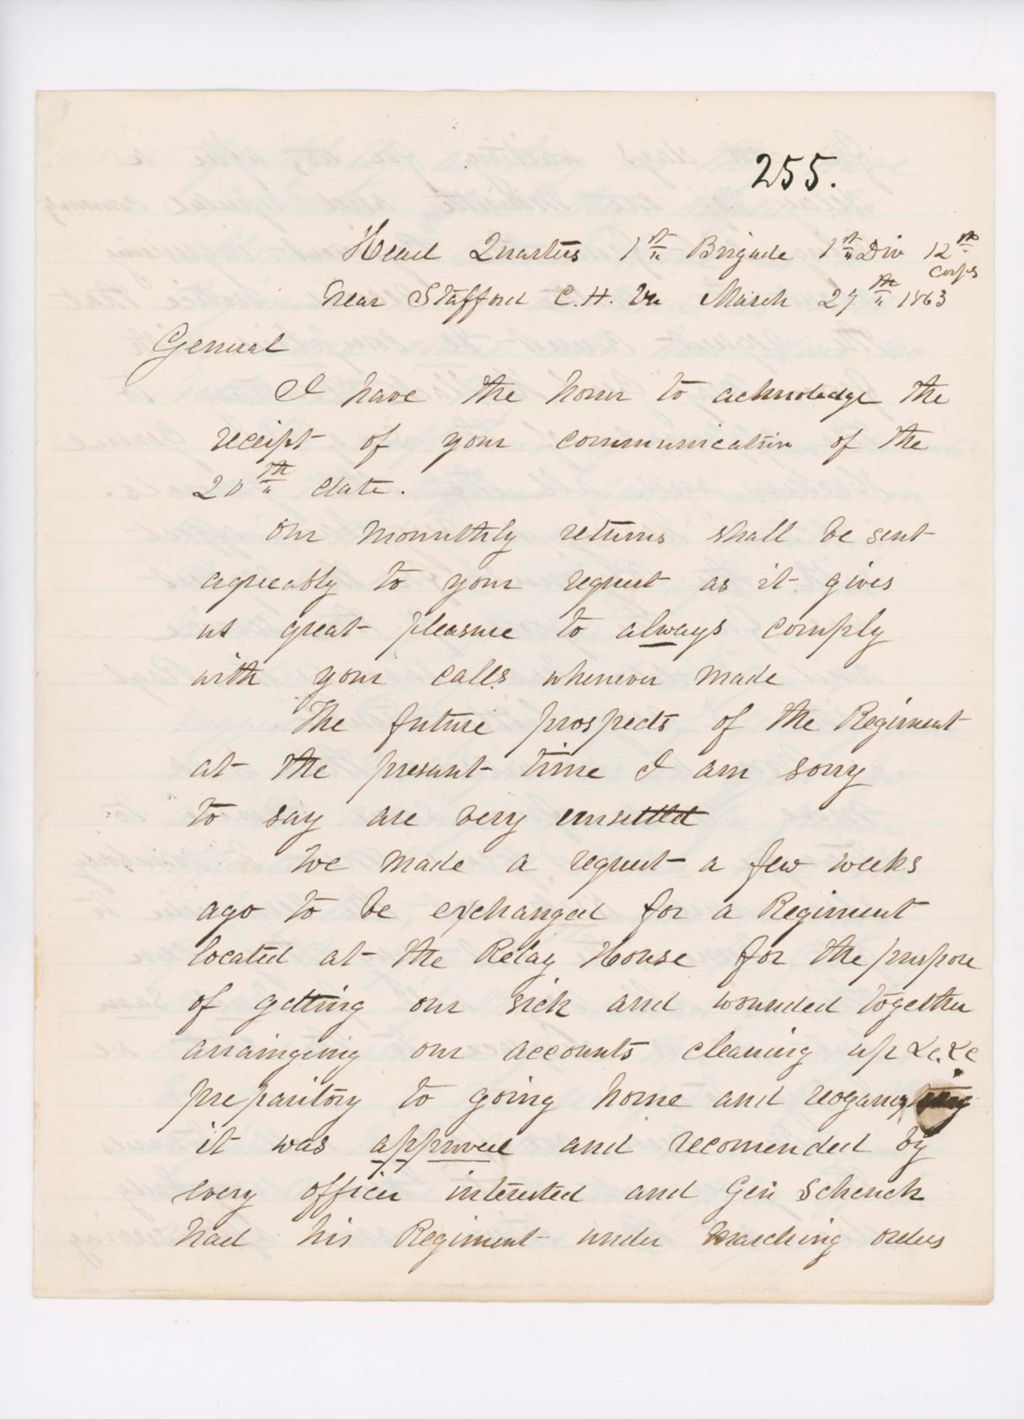 255.
Head Quarters 1st Brigade 1st Div 12th Corps
Near Stafford C.H. Va March 27th 1863
General
I have the honor to acknoledge the
receipt of your communication of the
20th date.
Our Monnthly returns shall be sent
agreeably to your request as it gives
us great pleasure to always comply
with your calls whenever made
The future prospects of the Regiment
at the present time I am sorry
to say are very unsettled
We made a request a few weeks
ago to be exchanged for a Regiment
located at the Relay House for the purpose
of getting our sick and wounded together
arraingeing our accounts cleaning up &c. &c
preparitory to going home and reoganizing
it was approved and recomended by
every officer interested and Gen Schenck
had his Regiment under marching orders